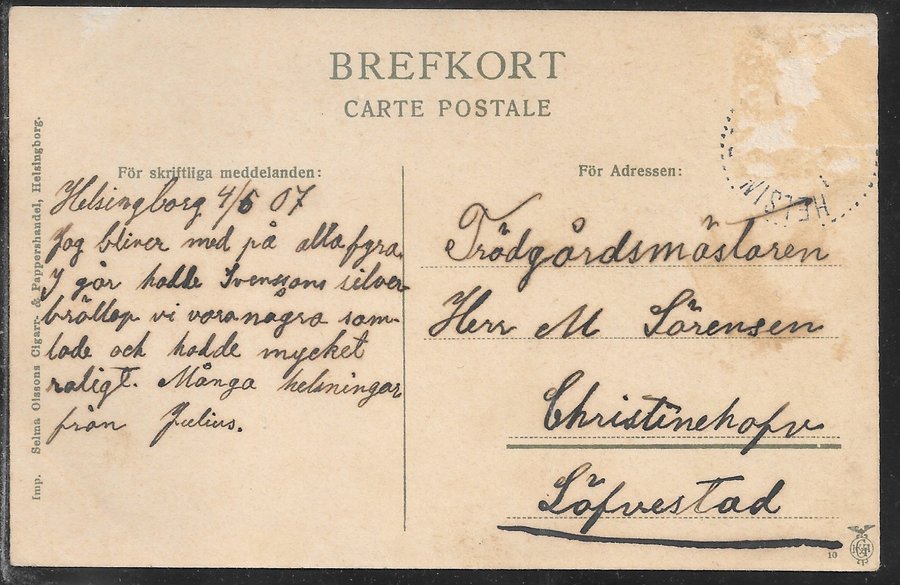 BREFKORT
CARTE POSTALE
För skriftliga meddelanden:
Helsingborg 4/6 07
Jag bliver med på alla fyra.
I går hadde Svenssons silver-
bröllop vi vora några sam-
lade och hadde mycket
roligt. Många helsningar
från Julius.
För Adressen:
Trädgårdsmästaren
Herr M Sörensen
Christinehofv
Löfvestad
HELSIN
Imp. Selma Olssons Cigarr- & Pappershandel, Helsingborg.
10